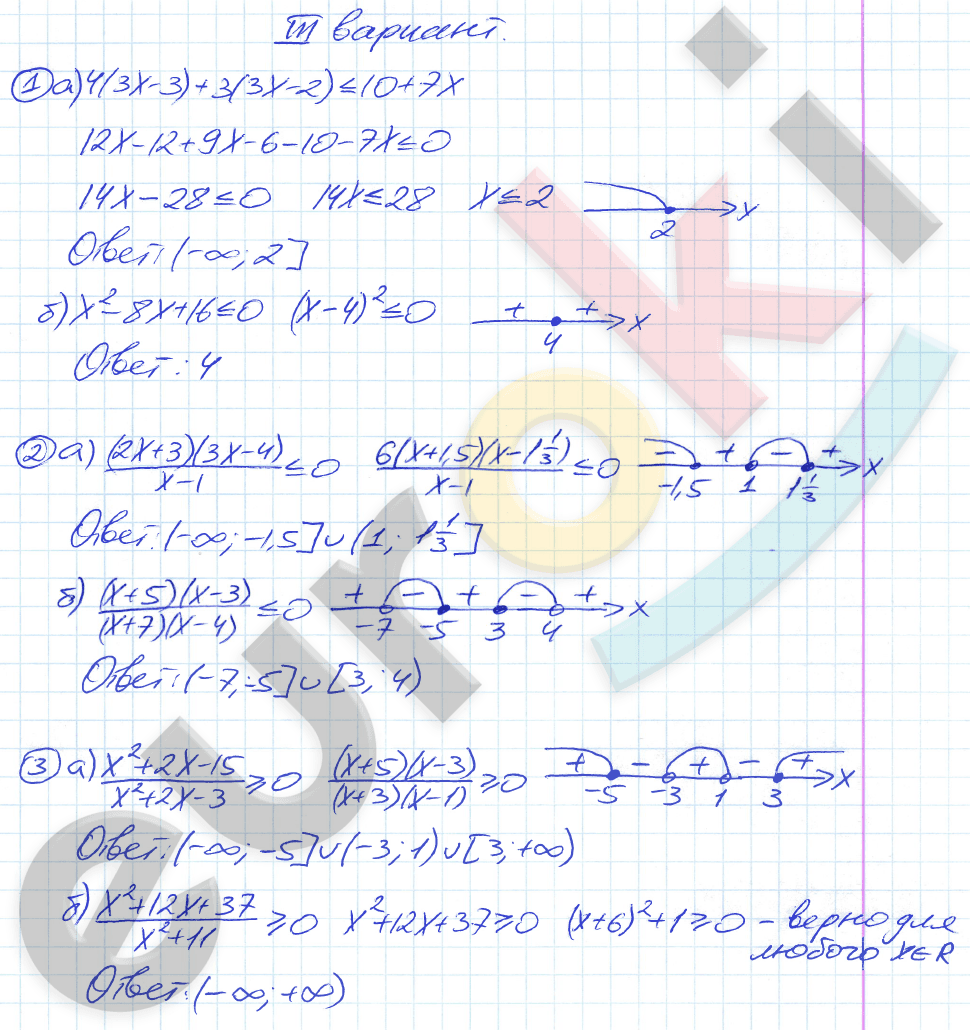 III вариант.
① а) 4(3x-3)+3(3x-2)≤10+7x
12x-12+9x-6-10-7x≤0
14x-28≤0 14x≤28 x≤2 2 x
Ответ: (-∞; 2]
б) x²-8x+16≤0 (x-4)²≤0 + + 4 x
Ответ: 4
② а) (2x+3)(3x-4)/(x-1) ≤0 6(x+1,5)(x-1 1/3)/(x-1) ≤0 - + - + -1,5 1 1 1/3 x
Ответ: (-∞; -1,5]∪(1; 1 1/3]
б) (x+5)(x-3)/((x+7)(x-4)) ≤0 + - + - + -7 -5 3 4 x
Ответ: (-7; -5]∪[3; 4)
③ а) (x²+2x-15)/(x²+2x-3) ≥0 (x+5)(x-3)/((x+3)(x-1)) ≥0 + - + - + -5 -3 1 3 x
Ответ: (-∞; -5]∪(-3; 1)∪[3; +∞)
б) (x²+12x+37)/(x²+11) ≥0 x²+12x+37≥0 (x+6)²+1≥0 – верно для
любого x∈R
Ответ: (-∞; +∞)
euroki